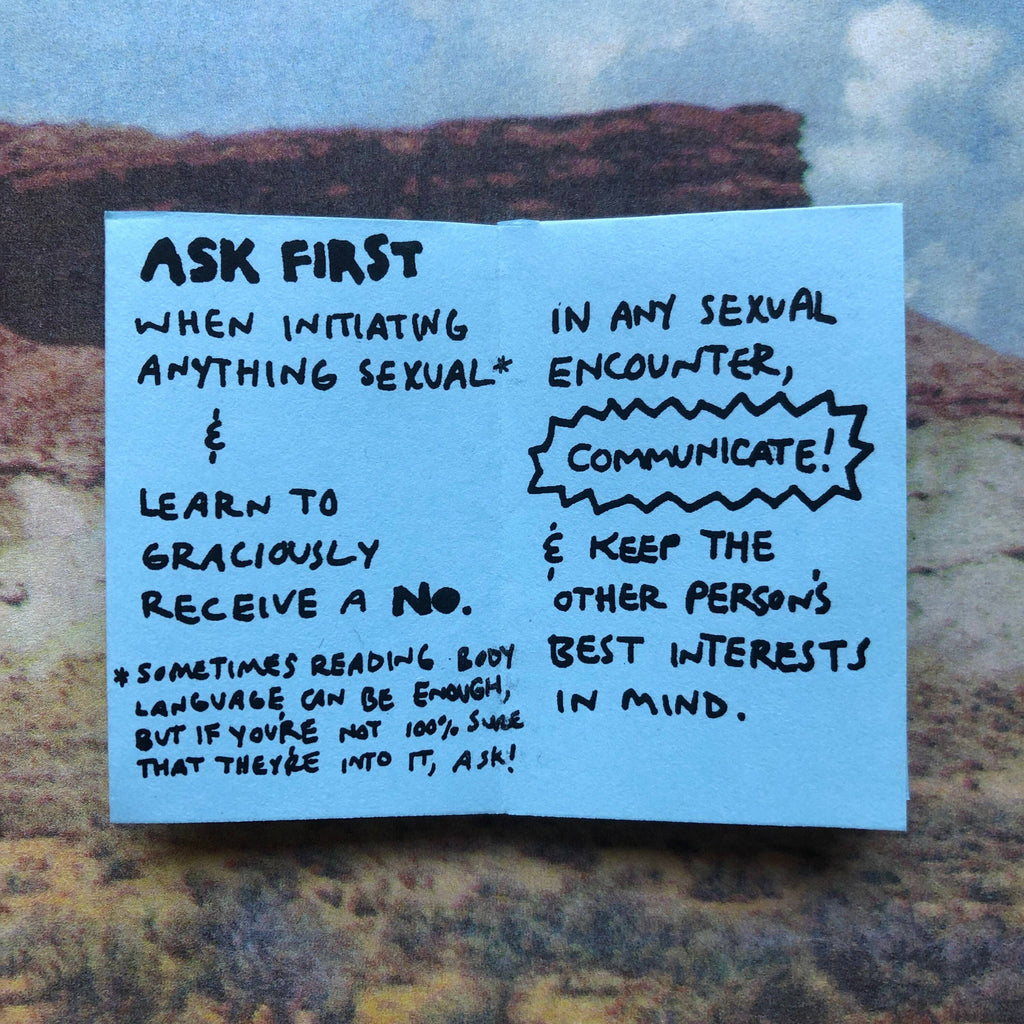 ASK FIRST
WHEN INITIATING
ANYTHING SEXUAL*
&
LEARN TO
GRACIOUSLY
RECEIVE A NO.
*SOMETIMES READING BODY
LANGUAGE CAN BE ENOUGH,
BUT IF YOU'RE NOT 100% SURE
THAT THEY'RE INTO IT, ASK!
IN ANY SEXUAL
ENCOUNTER,
COMMUNICATE!
& KEEP THE
OTHER PERSON'S
BEST INTERESTS
IN MIND.